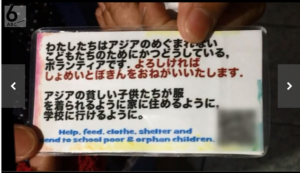 6
わたしたちはアジアのめぐまれない
こどもたちのためにかつどうしている,
ボランティアです. よろしければ
しょめいとぼきんをおねがいいたします.
アジアの貧しい子供たちが服
を着られるように家に住めるように,
学校に行けるように。
Help, feed, clothe, shelter and
end to school poor & orphan children.